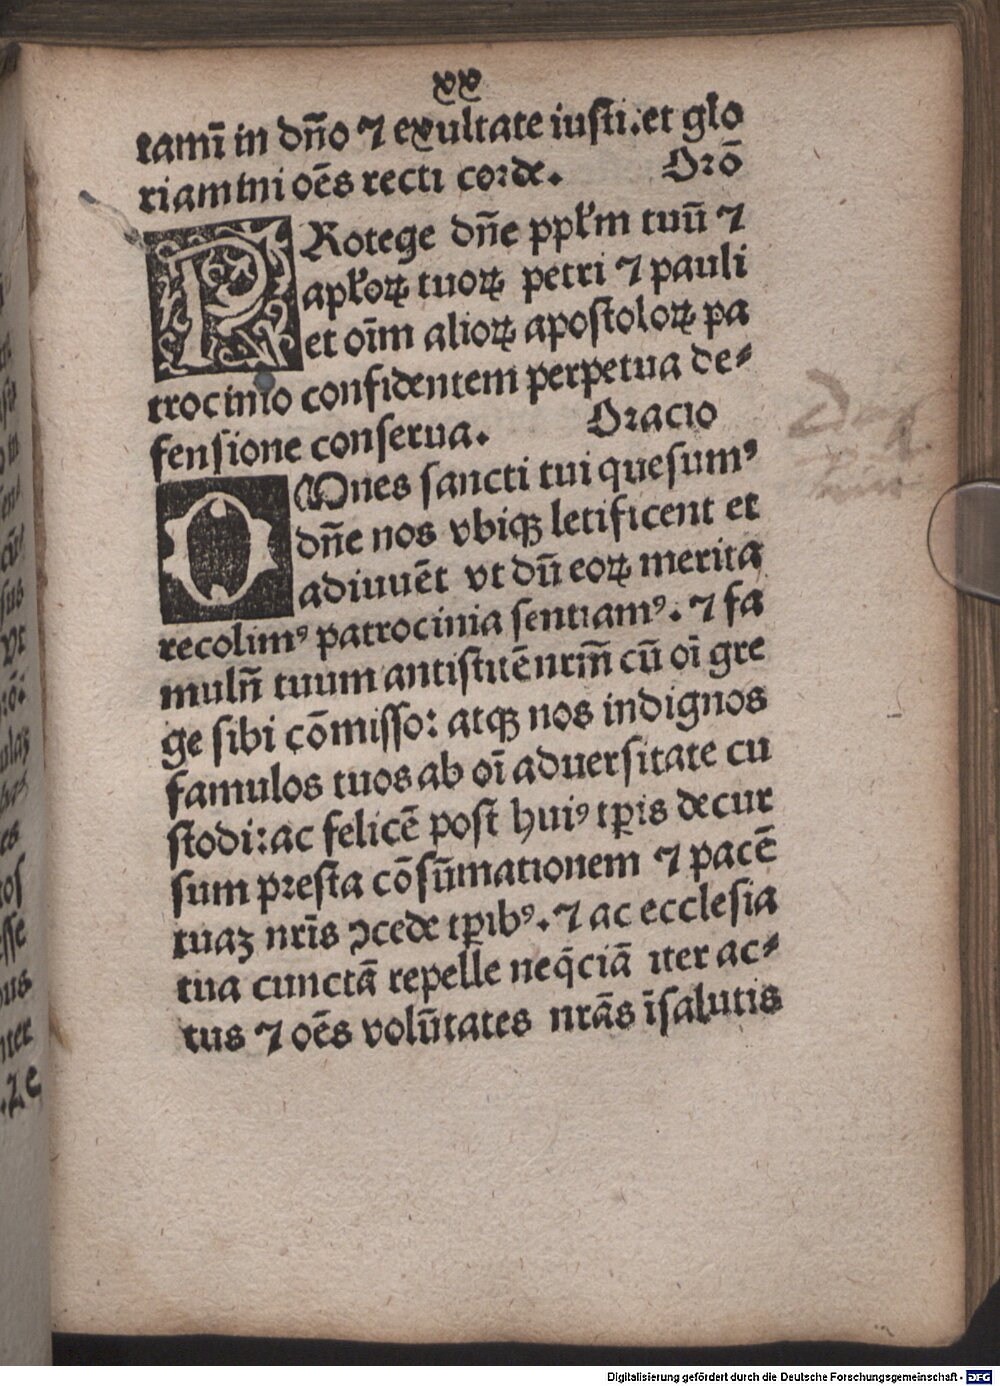 xx
tamī in dn̄o ⁊ exultate iusti.et glo
riamini oēs recti corde. Orō
PRotege dn̄e ppł'm tuū ⁊
apłoꝝ tuoꝝ petri ⁊ pauli
et oīm alioꝝ apostoloꝝ pa
trocinio confidentem perpetua de⸗
fensione conserua. Oracio
OMnes sancti tui quesumꝰ
dn̄e nos vbiqꝫ letificent et
adiuuēt vt dū eoꝝ merita
recolimꝰ patrocinia sentiamꝰ. ⁊ fa
muln̄ tuum antistitē nrm̄ cū oī gre
ge sibi cōmisso: atqꝫ nos indignos
famulos tuos ab oī aduersitate cu
stodi: ac felicē post huiꝰ tp̄is decur
sum presta cōsūmationem ⁊ pacē
tuaꝫ nrīs ꝯcede tp̄ibꝰ. ⁊ ac ecclesia
tua cunctā repelle neq̄ciā iter ac⸗
tus ⁊ oēs volūtates nrās īsalutis
Digitalisierung gefördert durch die Deutsche Forschungsgemeinschaft - DFG